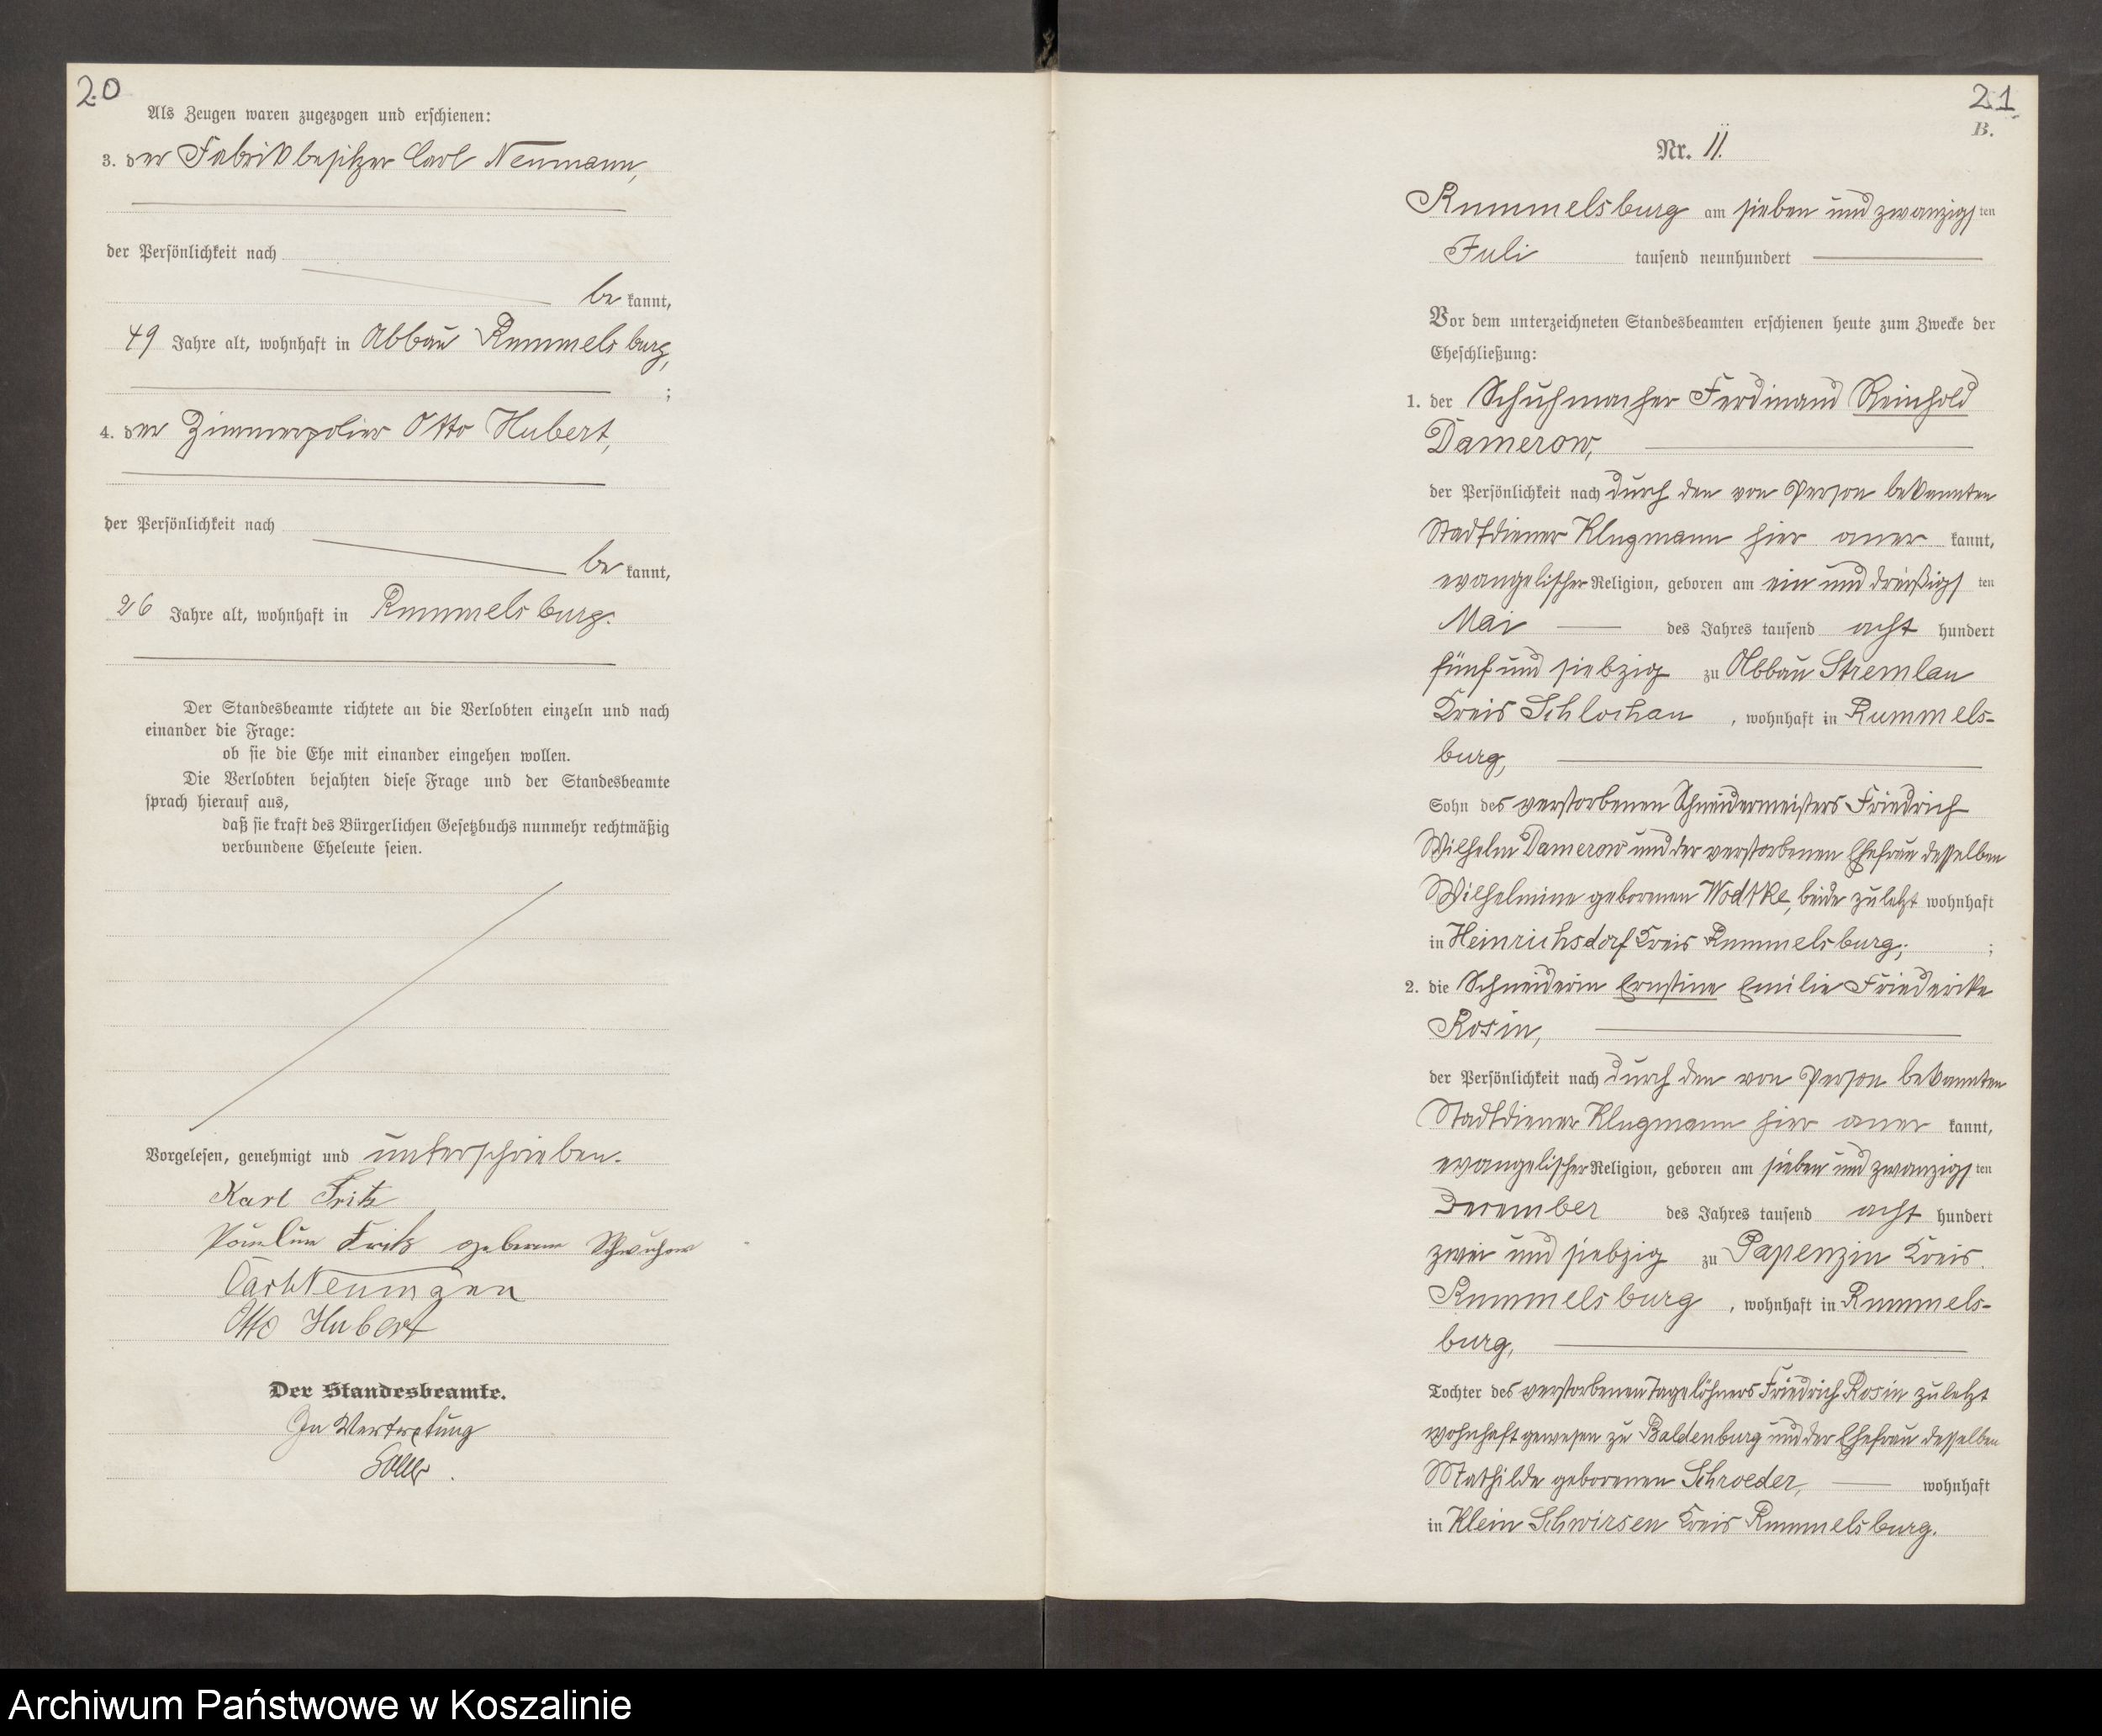 20
Als Zeugen waren zugezogen und erschienen:
3. der Fabrikbesitzer Carl Neumann,
der Persönlichkeit nach
be kannt,
49 Jahre alt, wohnhaft in Abbau Rummelsburg,
;
4. der Zimmerpolier Otto Hubert,
der Persönlichkeit nach
be kannt,
26 Jahre alt, wohnhaft in Rummelsburg.
Der Standesbeamte richtete an die Verlobten einzeln und nach
einander die Frage:
ob sie die Ehe mit einander eingehen wollen.
Die Verlobten bejahten diese Frage und der Standesbeamte
sprach hierauf aus,
daß sie kraft des Bürgerlichen Gesetzbuchs nunmehr rechtmäßig
verbundene Eheleute seien.
Vorgelesen, genehmigt und unterschrieben.
Karl Fritz
Fritz geborene
Carl Neumann
Otto Hubert
Der Standesbeamte.
In Vertretung
21
B.
Nr. 11.
Rummelsburg am sieben und zwanzigsten
Juli tausend neunhundert
Vor dem unterzeichneten Standesbeamten erschienen heute zum Zwecke der
Eheschließung:
1. der Schuhmacher Ferdinand Reinhold
Damerow,
der Persönlichkeit nach durch den von Person bekannten
Stadtdiener Klugmann hier aner kannt,
evangelischer Religion, geboren am ein und dreißigsten
Mai des Jahres tausend acht hundert
fünf und siebzig zu Abbau Stremlau
Kreis Schlochau, wohnhaft in Rummels-
burg,
Sohn des verstorbenen Schneidermeisters Friedrich
Wilhelm Damerow und der verstorbenen Ehefrau desselben
Wilhelmine geborenen Wodtke, beide zuletzt wohnhaft
in Heinrichsdorf Kreis Rummelsburg; ;
2. die Schneiderin Ernstine Emilie Friederike
Rosin,
der Persönlichkeit nach durch den von Person bekannten
Stadtdiener Klugmann hier aner kannt,
evangelischer Religion, geboren am sieben und zwanzigsten
December des Jahres tausend acht hundert
zwei und siebzig zu Papenzin Kreis
Rummelsburg, wohnhaft in Rummels-
burg,
Tochter des verstorbenen Tagelöhners Friedrich Rosin zuletzt
wohnhaft gewesen zu Baldenburg und der Ehefrau desselben
Mathilde geborenen Schroeder, wohnhaft
in Klein Schwirsen Kreis Rummelsburg.
Archiwum Państwowe w Koszalinie